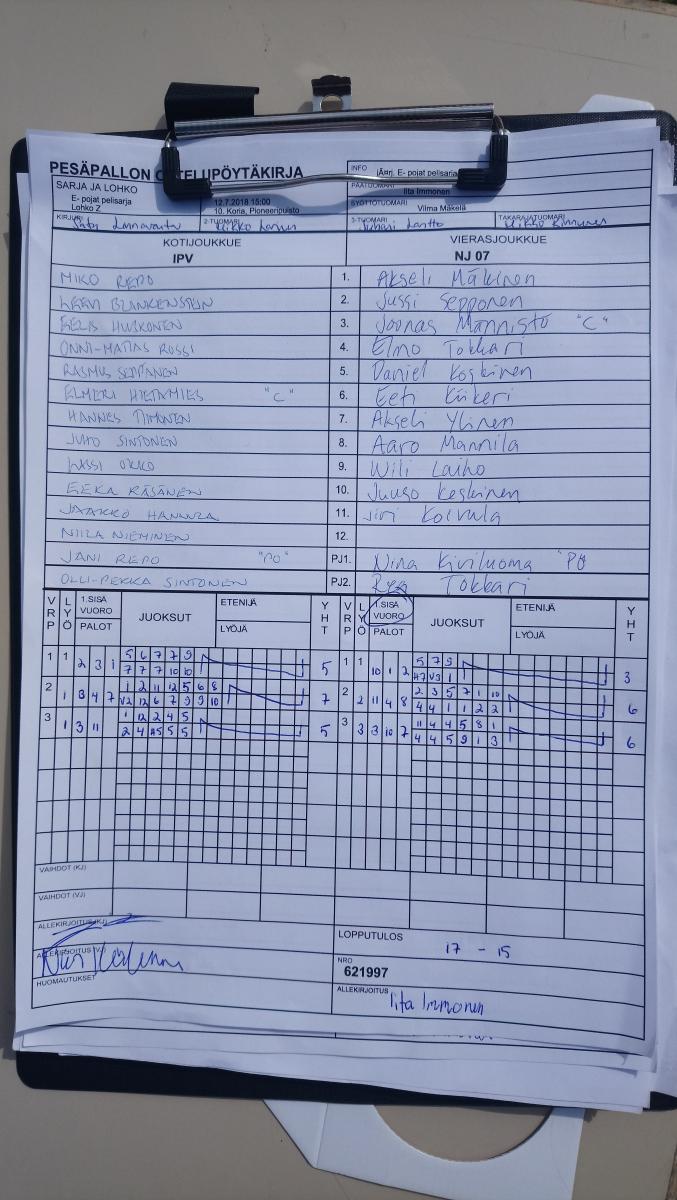 PESÄPALLON OTTELUPÖYTÄKIRJA
INFO
jÄnj. E- pojat pelisarja
SARJA JA LOHKO
E- pojat pelisarja
Lohko Z
12.7.2018 15:00
10. Koria, Pioneeripuisto
PÄÄTUOMARI
Iita Immonen
SYÖTTÖTUOMARI
Vilma Mäkelä
KIRJURI
2-TUOMARI
Mikko
3-TUOMARI
Juhani
TAKARAJATUOMARI
Mikko Kinnunen
KOTIJOUKKUE
IPV
VIERASJOUKKUE
NJ 07
MIKO REPO 1. Akseli Mäkinen
LEEVI BLANKENSTIJN 2. Jussi Sepponen
EELIS HUSKONEN 3. Joonas Männistö "C"
ONNI-MATIAS ROSSI 4. Elmo Tokkari
RASMUS SEPPÄNEN 5. Daniel Koskinen
ELMERI HIETAMIES "C" 6. Eeti Kiikeri
HANNES TIMONEN 7. Akseli Ylinen
JUHO SINTONEN 8. Aaro Mannila
LASSI OKKO 9. Wili Laiho
EEKA RÄSÄNEN 10. Juuso Keskinen
JAAKKO HANNULA 11. Jiri Koivula
NIILA NIEMINEN 12.
JANI REPO "PO" PJ1. Nina Kiviluoma "PO
OLLI-PEKKA SINTONEN PJ2. Tokkari
VRP LYÖ 1.SISÄ VUORO PALOT JUOKSUT ETENIJÄ LYÖJÄ YHT VRP LYÖ 1.SISÄ VUORO PALOT JUOKSUT ETENIJÄ LYÖJÄ YHT
1 1 2 3 1 5 6 7 7 9 5 1 1 10 1 2 5 7 9 3
7 7 7 10 10 H7 V3 1
2 1 3 4 7 1 2 11 12 5 6 8 7 2 2 11 4 8 2 3 5 7 1 10 6
V2 12 6 7 9 9 10 4 4 1 1 2 2
3 1 3 11 1 12 2 4 5 5 3 3 3 10 7 11 4 4 5 8 1 6
2 4 H5 5 5 4 4 5 9 1 3
VAIHDOT (KJ)
VAIHDOT (VJ)
ALLEKIRJOITUS (KJ)
ALLEKIRJOITUS (VJ)
HUOMAUTUKSET
LOPPUTULOS
17 - 15
NRO
621997
ALLEKIRJOITUS
Iita Immonen